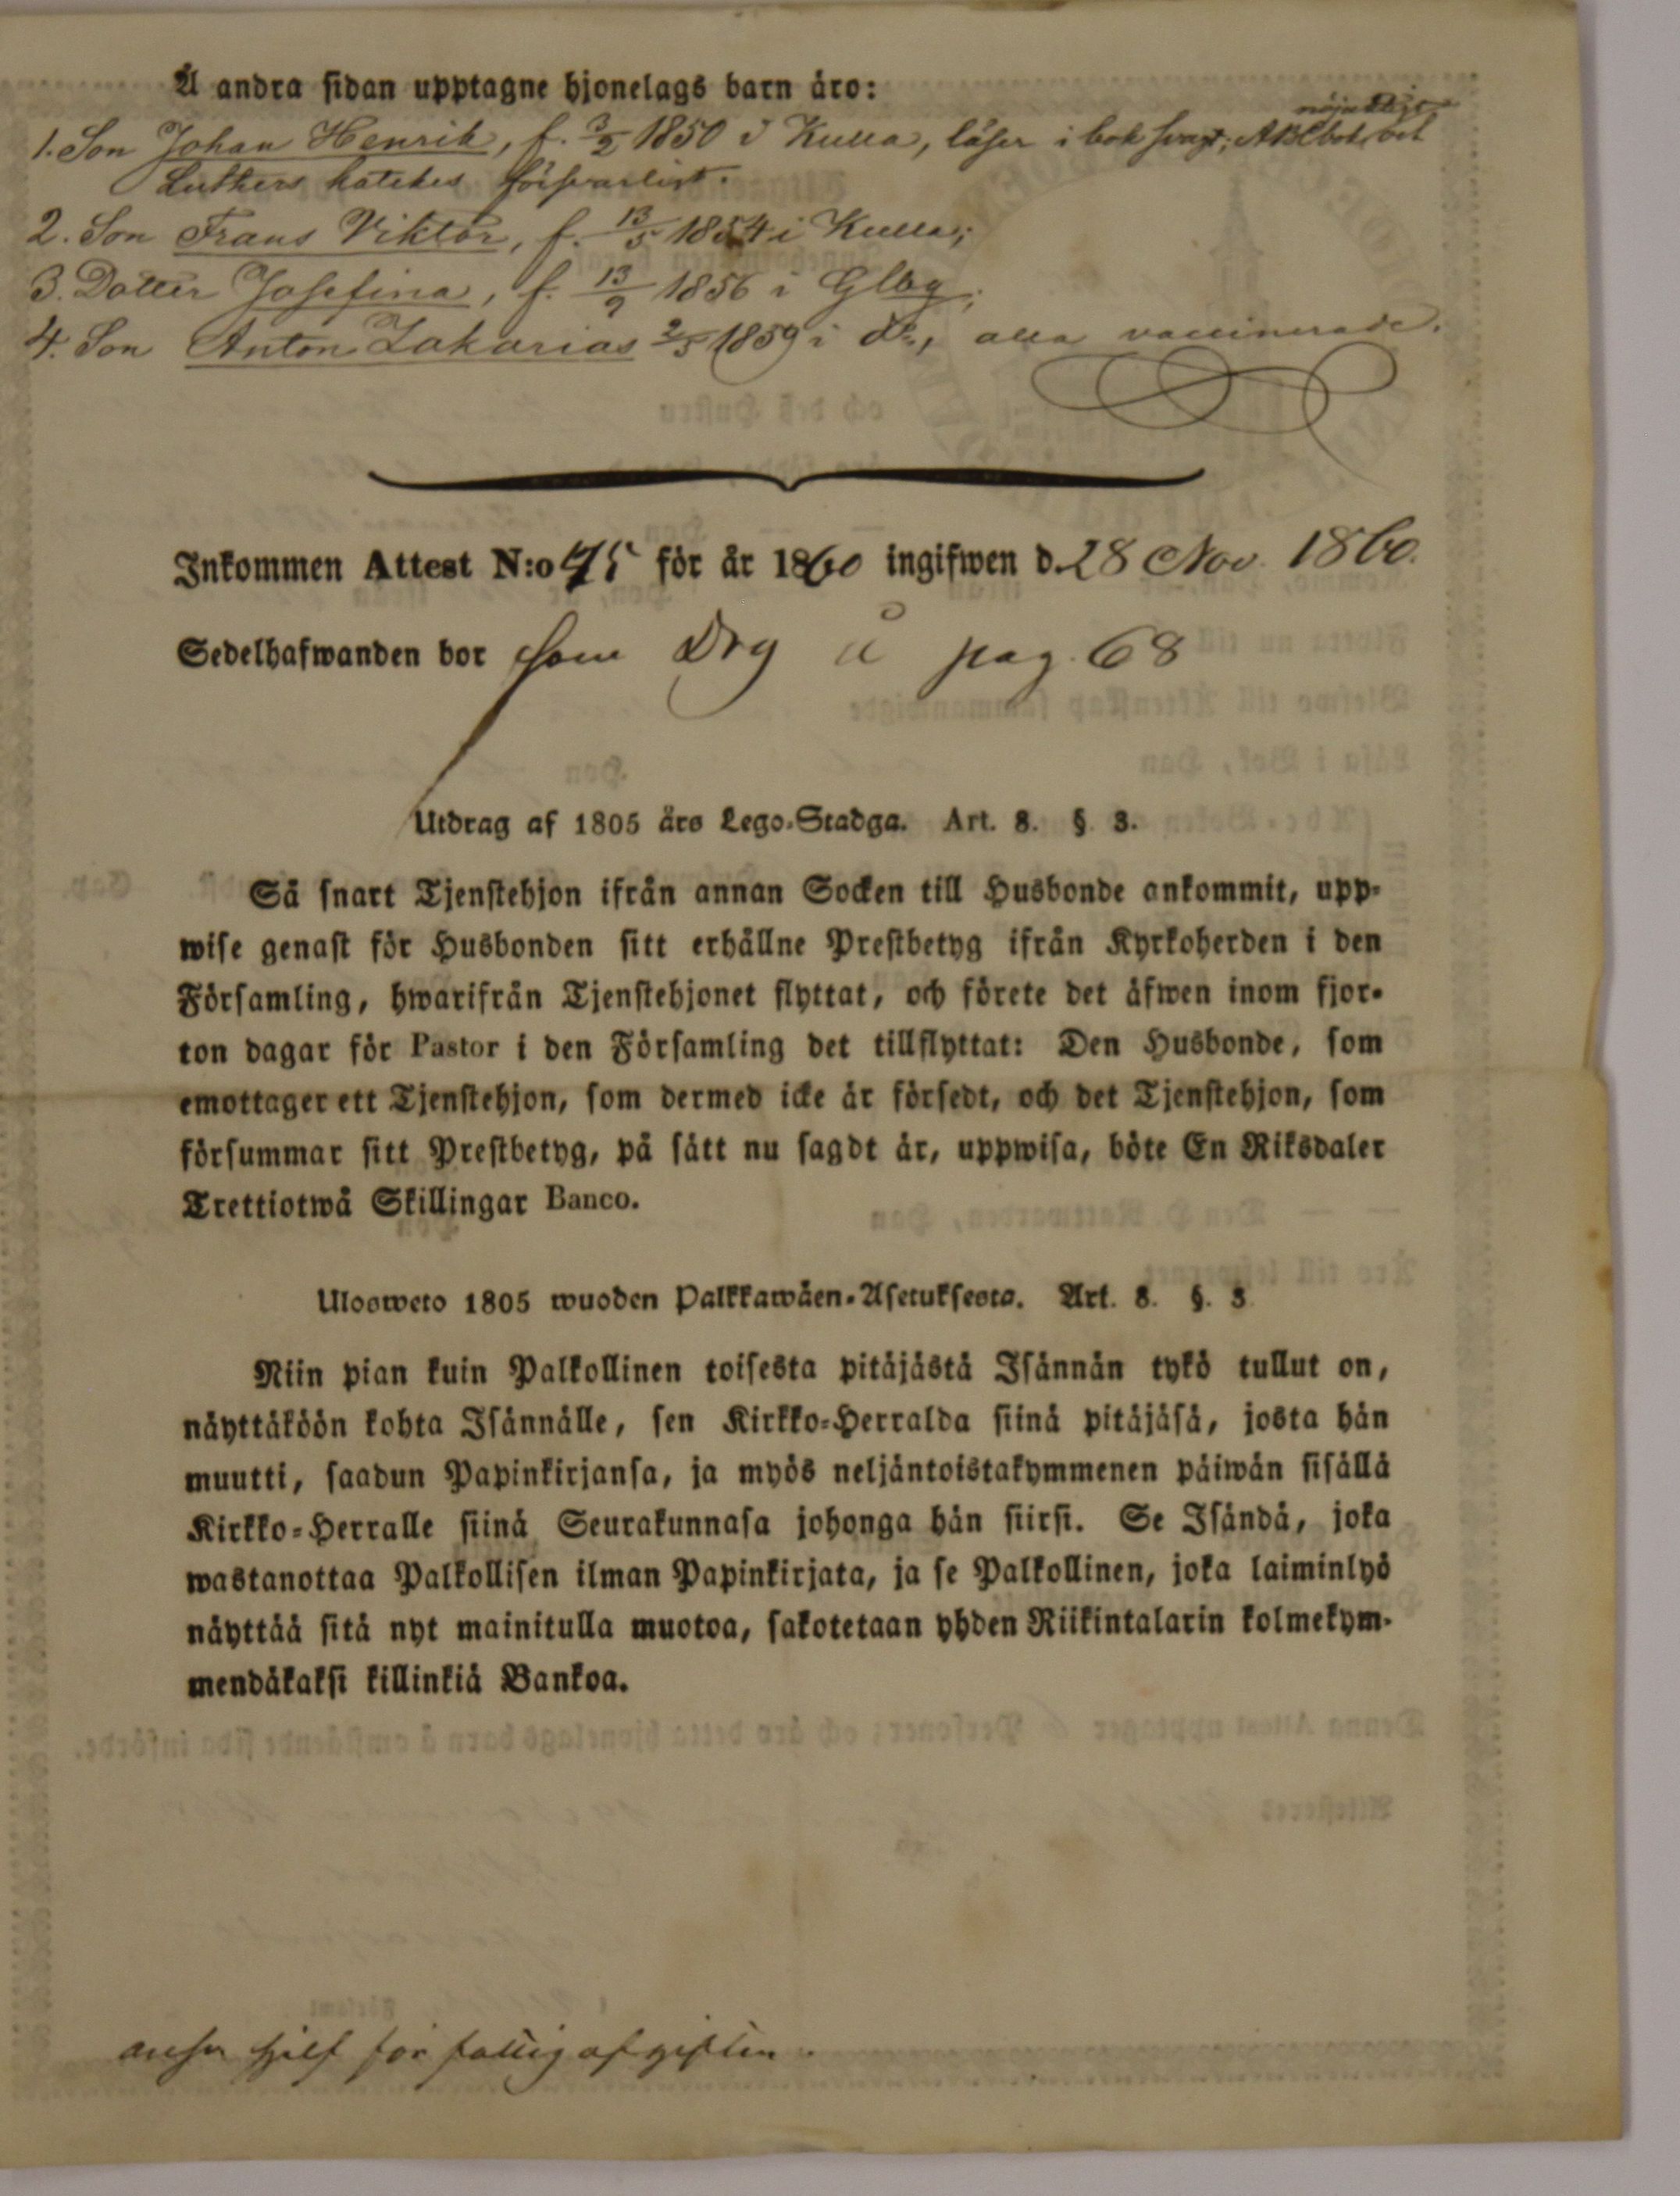 Å andra sidan upptagne hjonelags barn äro:
nöjaktigt
1. Son Johan Henrik, f. 3/2 1850 i Kulla, läser i bok svagt; ABCbok, och
Luthers katekes försvarligt.
2. Son Frans Viktor, f. 13/5 1854 i Kulla;
3. Dotter Josefina, f. 13/9 1856 i Glby;
4. Son Anton Zakarias 2/5 1859 i do, alla vaccinerade.
Inkommen Attest N:o 75 för år 1860 ingifwen d. 28 Nov. 1860.
Sedelhafwanden bor som Drg å pag. 68
Utdrag af 1805 års Lego-Stadga. Art. 8. § 3.
Så snart Tjenstehjon ifrån annan Socken till Husbonde ankommit, upp-
wise genast för Husbonden sitt erhållne Prestbetyg ifrån Kyrkoherden i den
Församling, hwarifrån Tjenstehjonet flyttat, och förete det äfwen inom fjor-
ton dagar för Pastor i den Församling det tillflyttat: Den Husbonde, som
emottager ett Tjenstehjon, som dermed icke är försedt, och det Tjenstehjon, som
försummar sitt Prestbetyg, på sätt nu sagdt är, uppwisa, böte En Riksdaler
Trettiotwå Skillingar Banco.
Ulosweto 1805 wuoden Palkkawäen-Asetuksesta. Art. 8. §. 3
Niin pian kuin Palkollinen toisesta pitäjästä Isännän tykö tullut on,
näyttäköön kohta Isännälle, sen Kirkko-Herralda siinä pitäjäsä, josta hän
muutti, saadun Papinkirjansa, ja myös neljäntoistakymmenen päiwän sisällä
Kirkko-Herralle siinä Seurakunnasa johonga hän siirsi. Se Isändä, joka
wastanottaa Palkollisen ilman Papinkirjata, ja se Palkollinen, joka laiminlyö
näyttää sitä nyt mainitulla muotoa, sakotetaan yhden Riikintalarin kolmekym-
mendäkaksi killinkiä Bankoa.
ansv. sjelf för fattigafgiften.